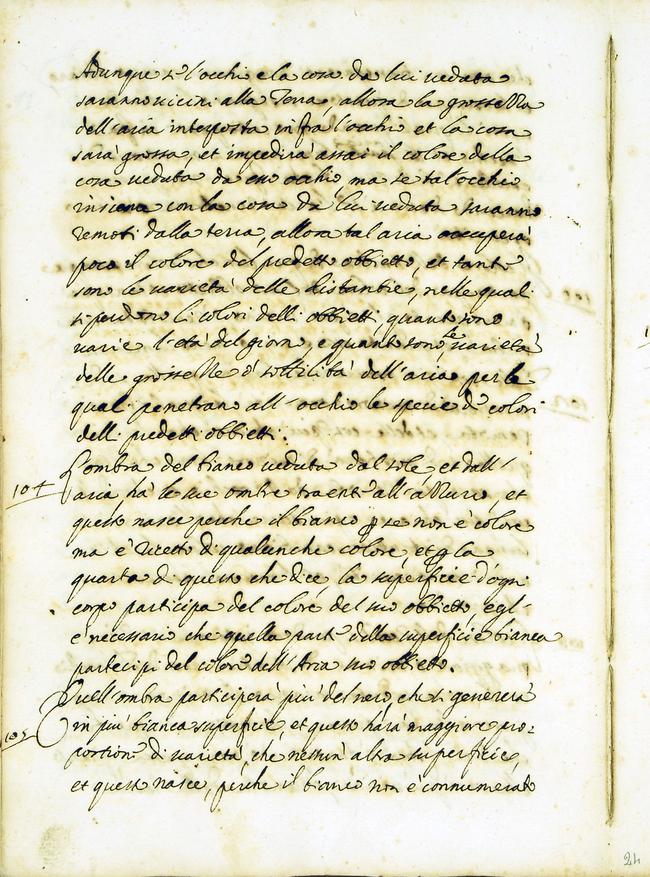 Adunque se l'occhio e la cosa da lui veduta
saranno vicini alla Terra, allora la grossezza
dell'aria interposta infra l'occhio et la cosa
sarà grossa, et impedirà assai il colore della
cosa veduta da esso occhio, ma se tal'occhio
insieme con la cosa da lui veduta saranno
remoti dalla terra, allora tal aria occuperà
poco il colore del predetto obbietto, et tante
sono le varietà delle distantie, nelle quali
si perdono li colori delli obbietti, quante sono
varie l'età del giorno, e quante sono le varietà
delle grossezze ò sottilità dell'aria, per le
quali penetrano all'occhio le specie de colori
delli predetti obbietti.
104 L'ombra del bianco veduta dal sole, et dall'
aria, hà le sue ombre traenti all'azzurro, et
questo nasce perche il bianco p se non è colore
ma è ricetto di qualunche colore, et p la
quarta di questo che dice, la superficie d'ogni
corpo participa del colore del suo obbietto, egl'
è necessario che quella parte della superficie bianca
partecipi del colore dell'Aria suo obbietto.
105 Quell'ombra participerà più del nero, che si genererà
in più bianca superficie, et questo harà maggiore pro-
portione di varietà, che nessun'altra superficie,
et questo nasce, perche il bianco non è connumerato
24